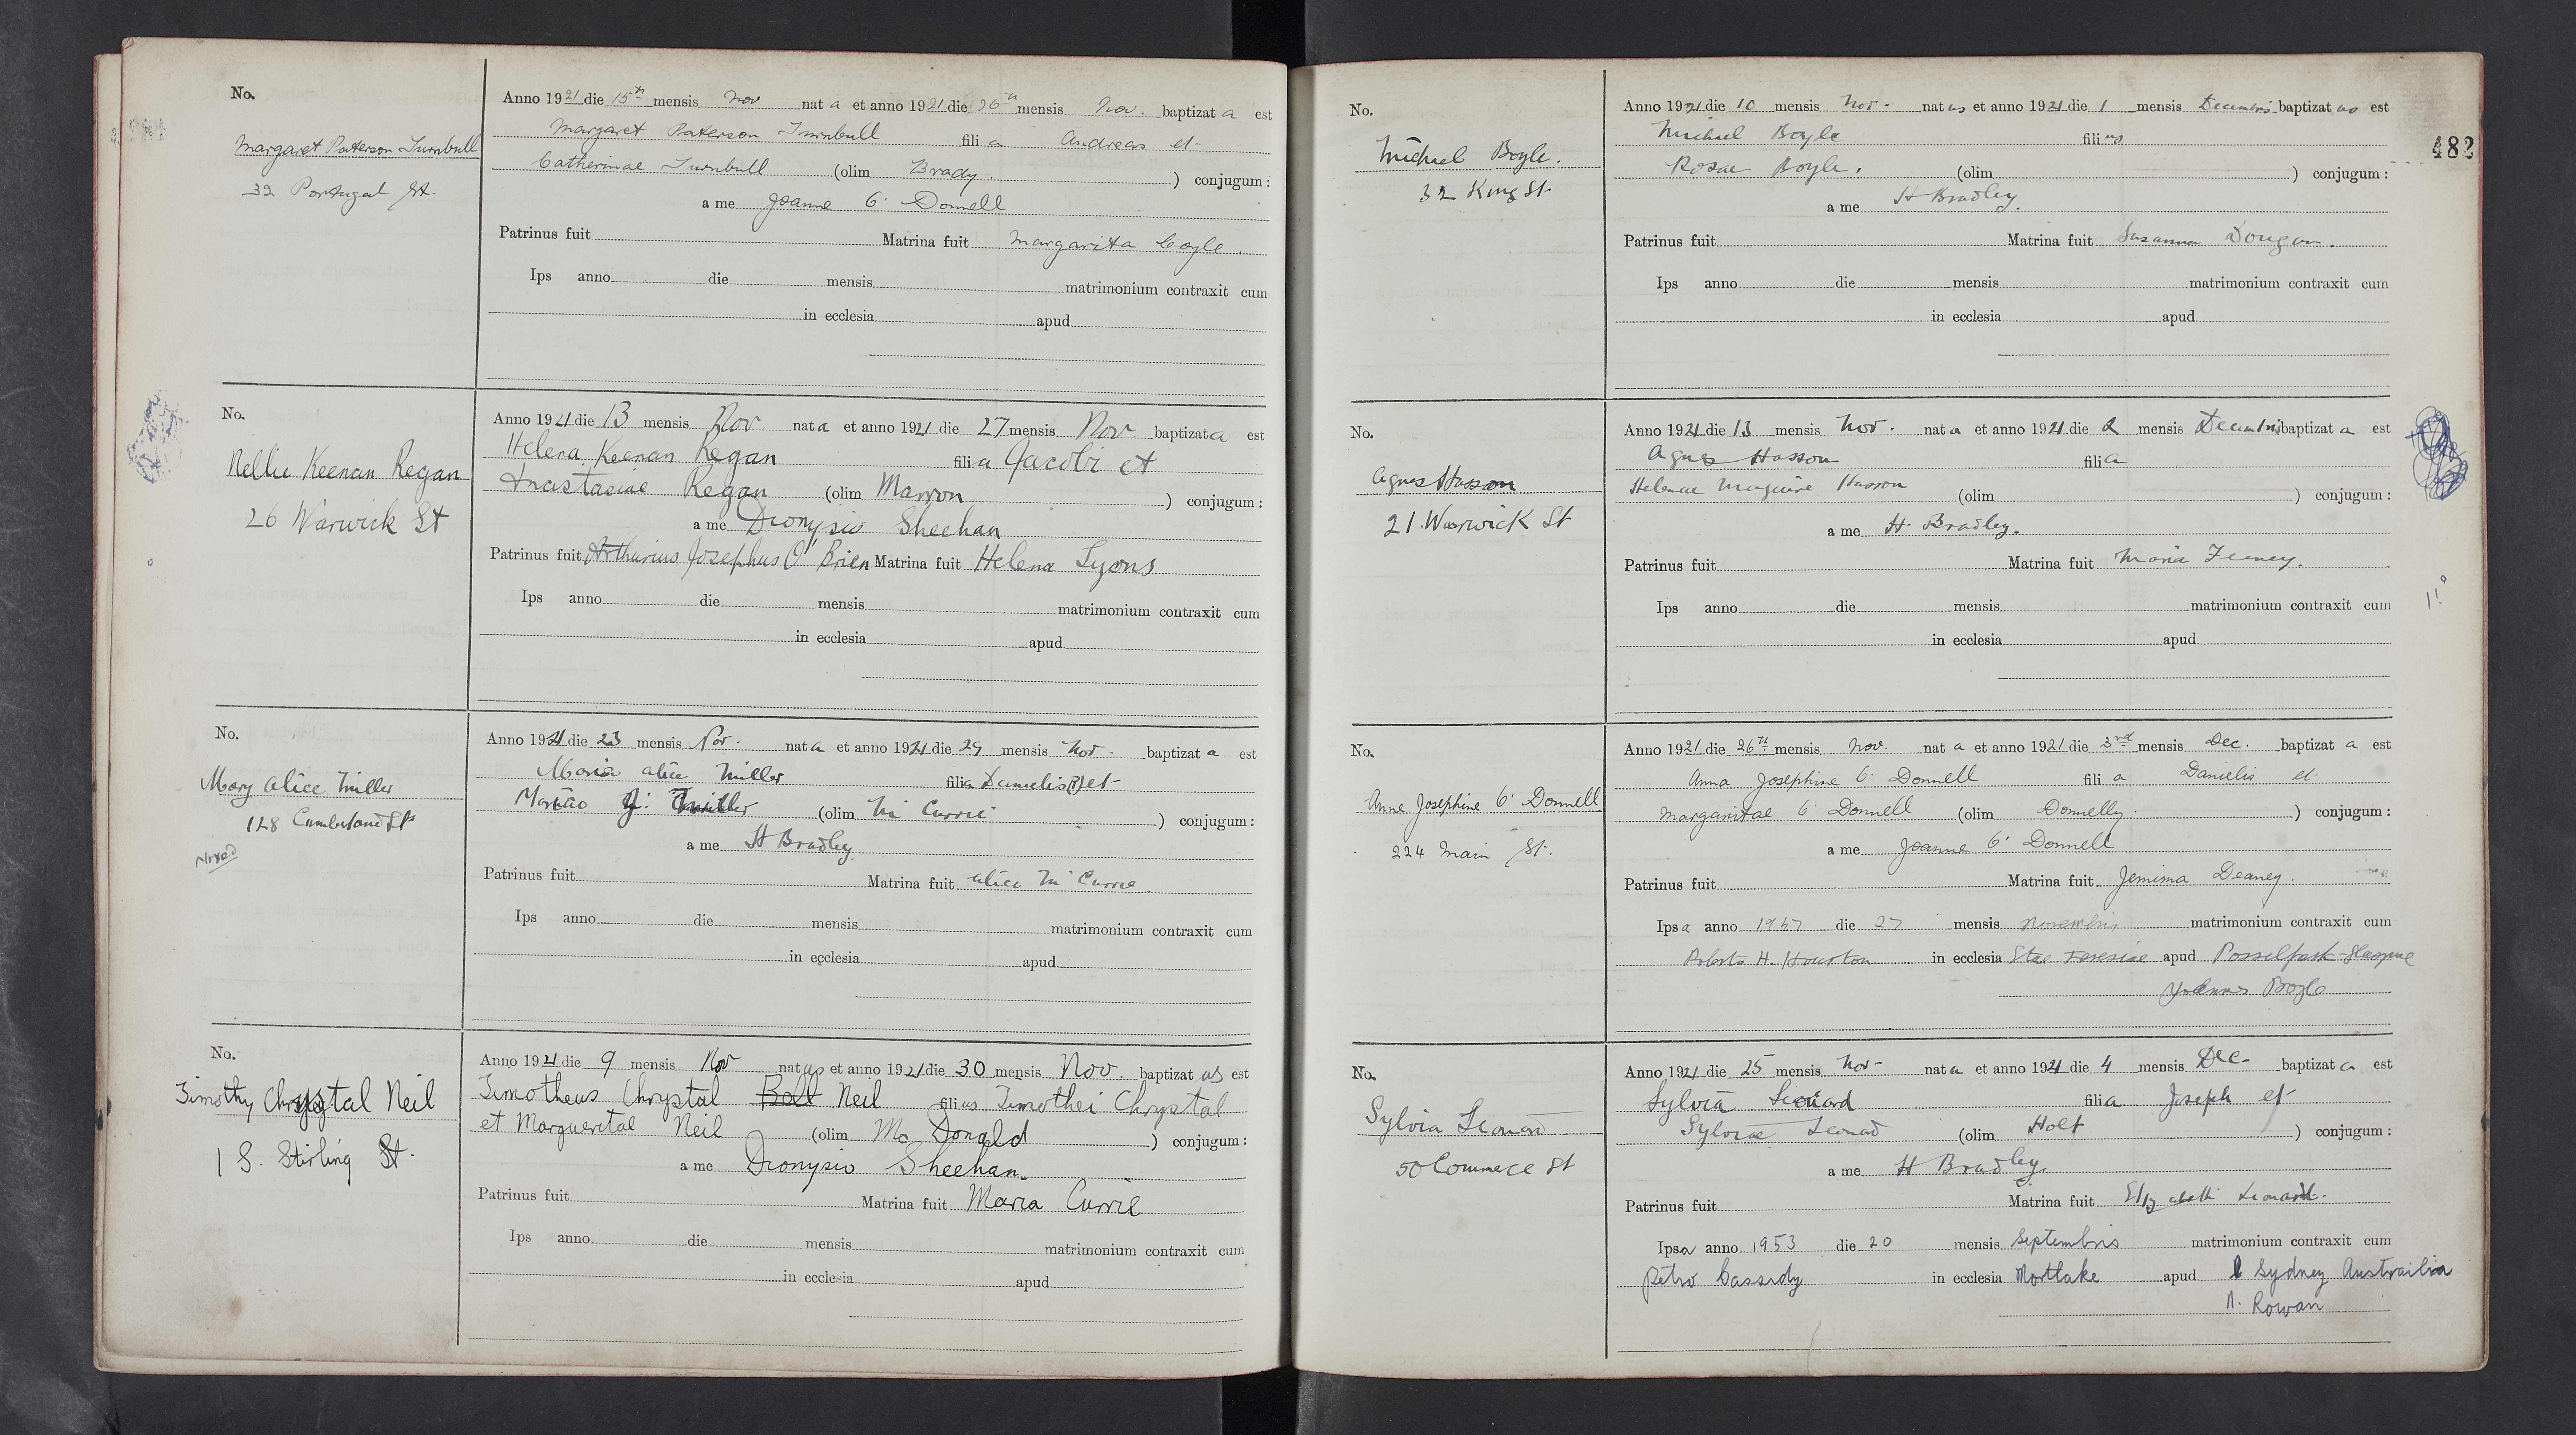 No.
Margaret Paterson Turnbull
32 Portugal St.
Anno 1921 die 15th mensis Nov nata et anno 1921 die 26th mensis Nov. baptizata est
Margaret Paterson Turnbull filia Andreas et
Catherinae Turnbull (olim Brady.) conjugum:
a me Joanne O'Donnell
Patrinus fuit Matrina fuit Margarita Coyle.
Ips anno die mensis matrimonium contraxit cum
in ecclesia apud
No.
Nellie Keenan Regan
26 Warwick St
Anno 1921 die 13 mensis Nov. nata et anno 1921 die 27 mensis Nov baptizata est
Helena Keenan Regan filia Jacobi et
Anastasiae Regan (olim Marron) conjugum:
a me Dionysio Sheehan
Patrinus fuit Arthurius Josephus O'Brien Matrina fuit Helena Lyons
Ips anno die mensis matrimonium contraxit cum
in ecclesia apud
No.
Mary Alice Miller
128 Cumberland St
Mixed
Anno 1921 die 23 mensis Nov. nata et anno 1921 die 29 mensis Nov. baptizata est
Maria Alice Miller filia Danielis (?) et
Miller (olim McCurrie) conjugum:
a me H Bradley
Patrinus fuit Matrina fuit Alice McCurrie.
Ips anno die mensis matrimonium contraxit cum
in ecclesia apud
No.
Timothy Chrystal Neil
1 S. Stirling St.
Anno 1921 die 9 mensis Nov natus et anno 1921 die 30 mensis Nov. baptizatus est
Timotheus Chrystal Ball Neil filius Timothei Chrystal
et Margueritae Neil (olim Mc Donald) conjugum:
a me Dionysio Sheehan.
Patrinus fuit Matrina fuit Maria Currie
Ips anno die mensis matrimonium contraxit cum
in ecclesia apud
482
No.
Michael Boyle.
32 King St
Anno 1921 die 10 mensis Nov. natus et anno 1921 die 1 mensis Decembris baptizatus est
Michael Boyle filius
Rosae Boyle. (olim ) conjugum:
a me H Bradley.
Patrinus fuit Matrina fuit Susanna Dougan.
Ips anno die mensis matrimonium contraxit cum
in ecclesia apud
No.
Agnes Hasson
21 Warwick St
Anno 1921 die 13 mensis Nov. nata et anno 1921 die 2 mensis Decembris baptizata est
Agnes Hasson filia
Helenae Maguire Hasson (olim ) conjugum:
a me H. Bradley.
Patrinus fuit Matrina fuit Maria Feeney.
Ips anno die mensis matrimonium contraxit cum
in ecclesia apud
No.
Anne Josephine O'Donnell
224 Main St.
Anno 1921 die 26th mensis Nov. nata et anno 1921 die 3rd mensis Dec. baptizata est
Anna Josephine O'Donnell filia Danielis et
Margaritae O'Donnell (olim Donnelly.) conjugum:
a me Joanne O'Donnell
Patrinus fuit Matrina fuit Jemima Deaney.
Ipsa anno 1947 die 27 mensis Novembris matrimonium contraxit cum
Roberto H. Houston in ecclesia Stae Teresiae apud Possilpark Glasguae
Joannes Boyle
No.
Sylvia Leonard
50 Commerce St
Anno 1921 die 25 mensis Nov. nata et anno 1921 die 4 mensis Dec. baptizata est
Sylvia Leonard filia Joseph et
Sylviae Leonard (olim Holt) conjugum:
a me H Bradley.
Patrinus fuit Matrina fuit Elizabeth Leonard.
Ipsa anno 1953 die 20 mensis Septembris matrimonium contraxit cum
Petro Cassidy in ecclesia Mortlake apud Sydney Austrailia
N. Rowan